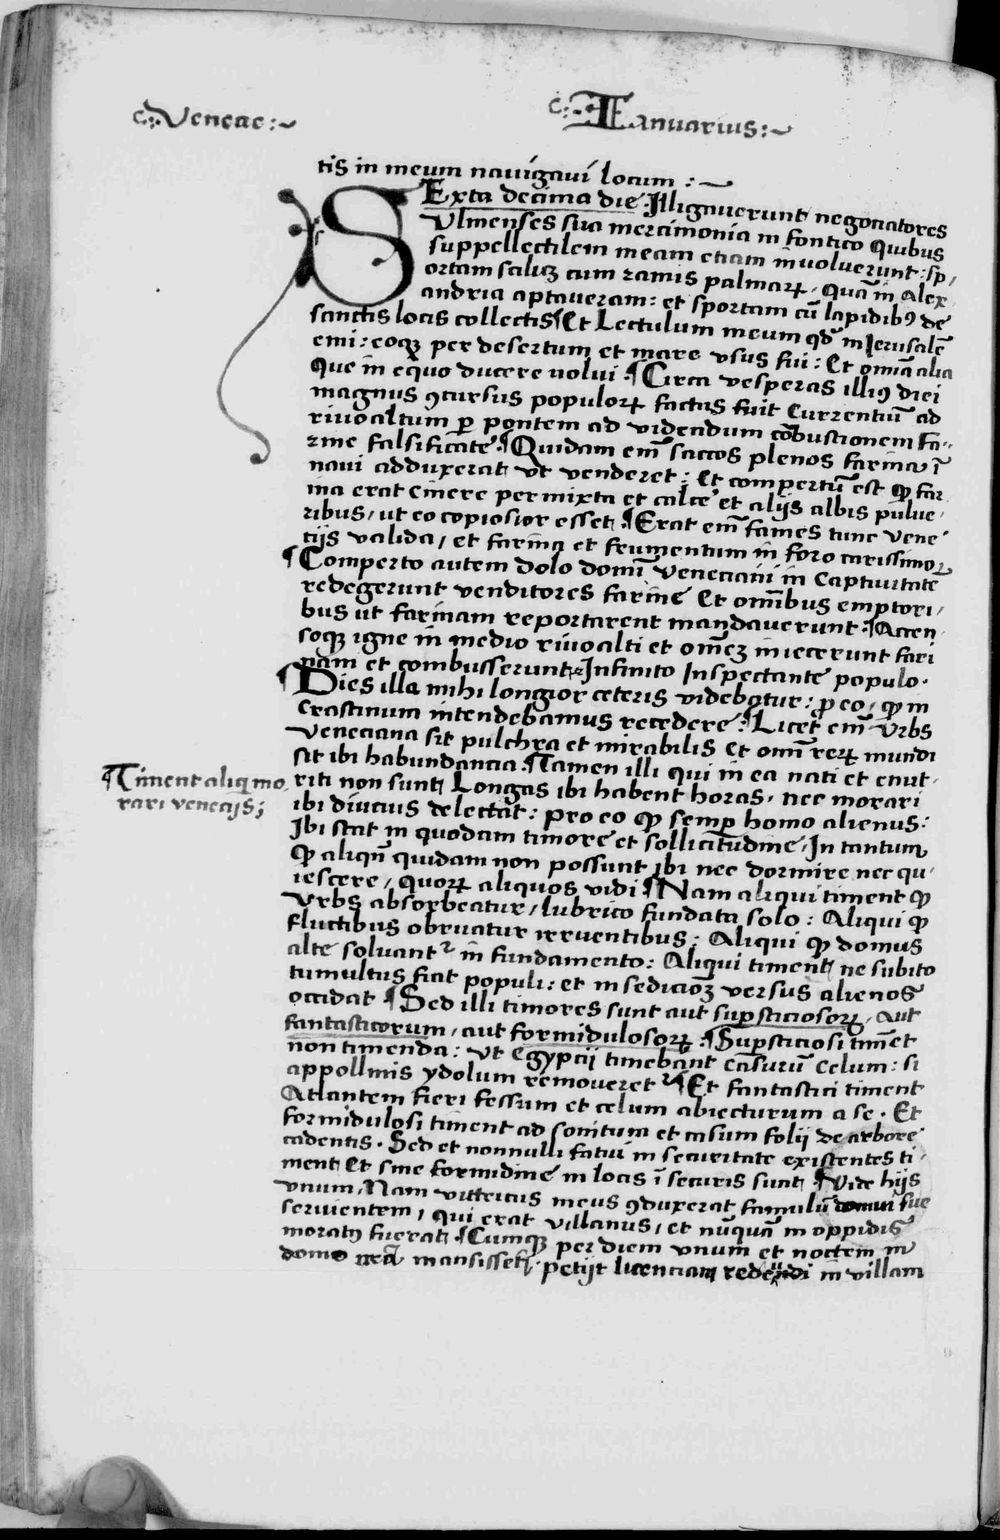 Veneae :~
Ianuarius :~
tis in meum nauigaui locum :~
SExta decima die Illigauerunt negociatores
Vlmenses sua mercimonia in fontico Quibus
suppellectilem meam etiam inuoluerunt : sp,
ortam scilicꝫ cum ramis palmarꝝ, Quā in Alex
andria aptaueram : et sportam cū lapidibꝰ de
sanctis locis collectis ¶ Et Lectulum meum qd̄ in Ierusalē
emi : eoqꝫ per desertum et mare vsus fui : Et omīa alia
Que in equo ducere uolui ¶ Circa vesperas illiꝰ diei
magnus ꝯcursus populorꝝ factus fuit Currentiū ad
riuoaltum ꝑ pontem ad videndum cōbustionem fa-
rine falsificate ¶ Quidam em̄ saccos plenos farina ī
naui adduxerat vt venderet : Et compertū est ꝙ far
ina erat cinere permixta et calce et alijs albis pulue
ribus, ut eo copiosior esset ¶ Erat em̄ fames tunc Vene
tijs valida, et farina et frumentum in foro carissimoꝝ
¶ Comperto autem dolo domī Veneciani in Captiuitate
redegerunt venditores farine Et omībus emptori,
bus ut farinam reportarent mandauerunt ¶ Accen
soqꝫ igne in medio riuoalti et om̄eꝫ iniecerunt fari
nam et combusserunt Infinito Inspectante populo.
¶ Dies illa mihi longior ceteris videbatur : ꝓ eo, ꝙ in
crastinum intendebamus recedere ¶ Licet em̄ Vrbs
Veneciana sit pulchra et mirabilis Et omī rerꝝ mundi
sit ibi habundancia ¶ Tamen illi qui in ea nati et enut-
¶ Timent aliq̄ mo
rari venecijs ;
riti non sunt Longas ibi habent horas, nec morari
ibi diucius delectat : pro eo ꝙ semꝑ homo alienus :
Ibi stat in quodam timore et sollicitudine, In tantum
ꝙ aliqn̄ quidam non possunt ibi nec dormire nec qu,
iescere, quorꝝ aliquos vidi ¶ Nam aliqui timent ꝙ
Vrbs absorbeatur, lubrico fundata solo : Aliqui ꝙ
fluctibus obruatur irruentibus : Aliqui ꝙ domus
alte soluantᷣ in fundamento : Aliqui timent ne subito
tumultus fiat populi : et in sedicioꝫ versus alienos
occidat ¶ Sed illi timores sunt aut suꝑsticiosorꝝ, Aut
fantasticorum, aut formidulosorꝝ : ¶ Suꝑsticiosi timēt
non timenda : Vt Egyptij timebant casurū Celum : si
appollinis ydolum remoueretᷣ ¶ Et fantastici timent
Atlantem fieri fessum et celum abiecturum a se . Et
formidulosi timent ad sonitum et casum folij de arbore
cadentis . Sed et nonnulli fatui in securitate existentes ti-
ment Et sine formidine in locis ī securis sunt ¶ Vide hijs
vnum, Nam vittricus meus ꝯduxerat famulū domui sue
seruientem, qui erat villanus, et nūquā in oppidis
moratꝰ fuerat ¶ Cumqꝫ per diem vnum et noctem in
domo nr̄a mansisset, petijt licenciam redeundi in villam